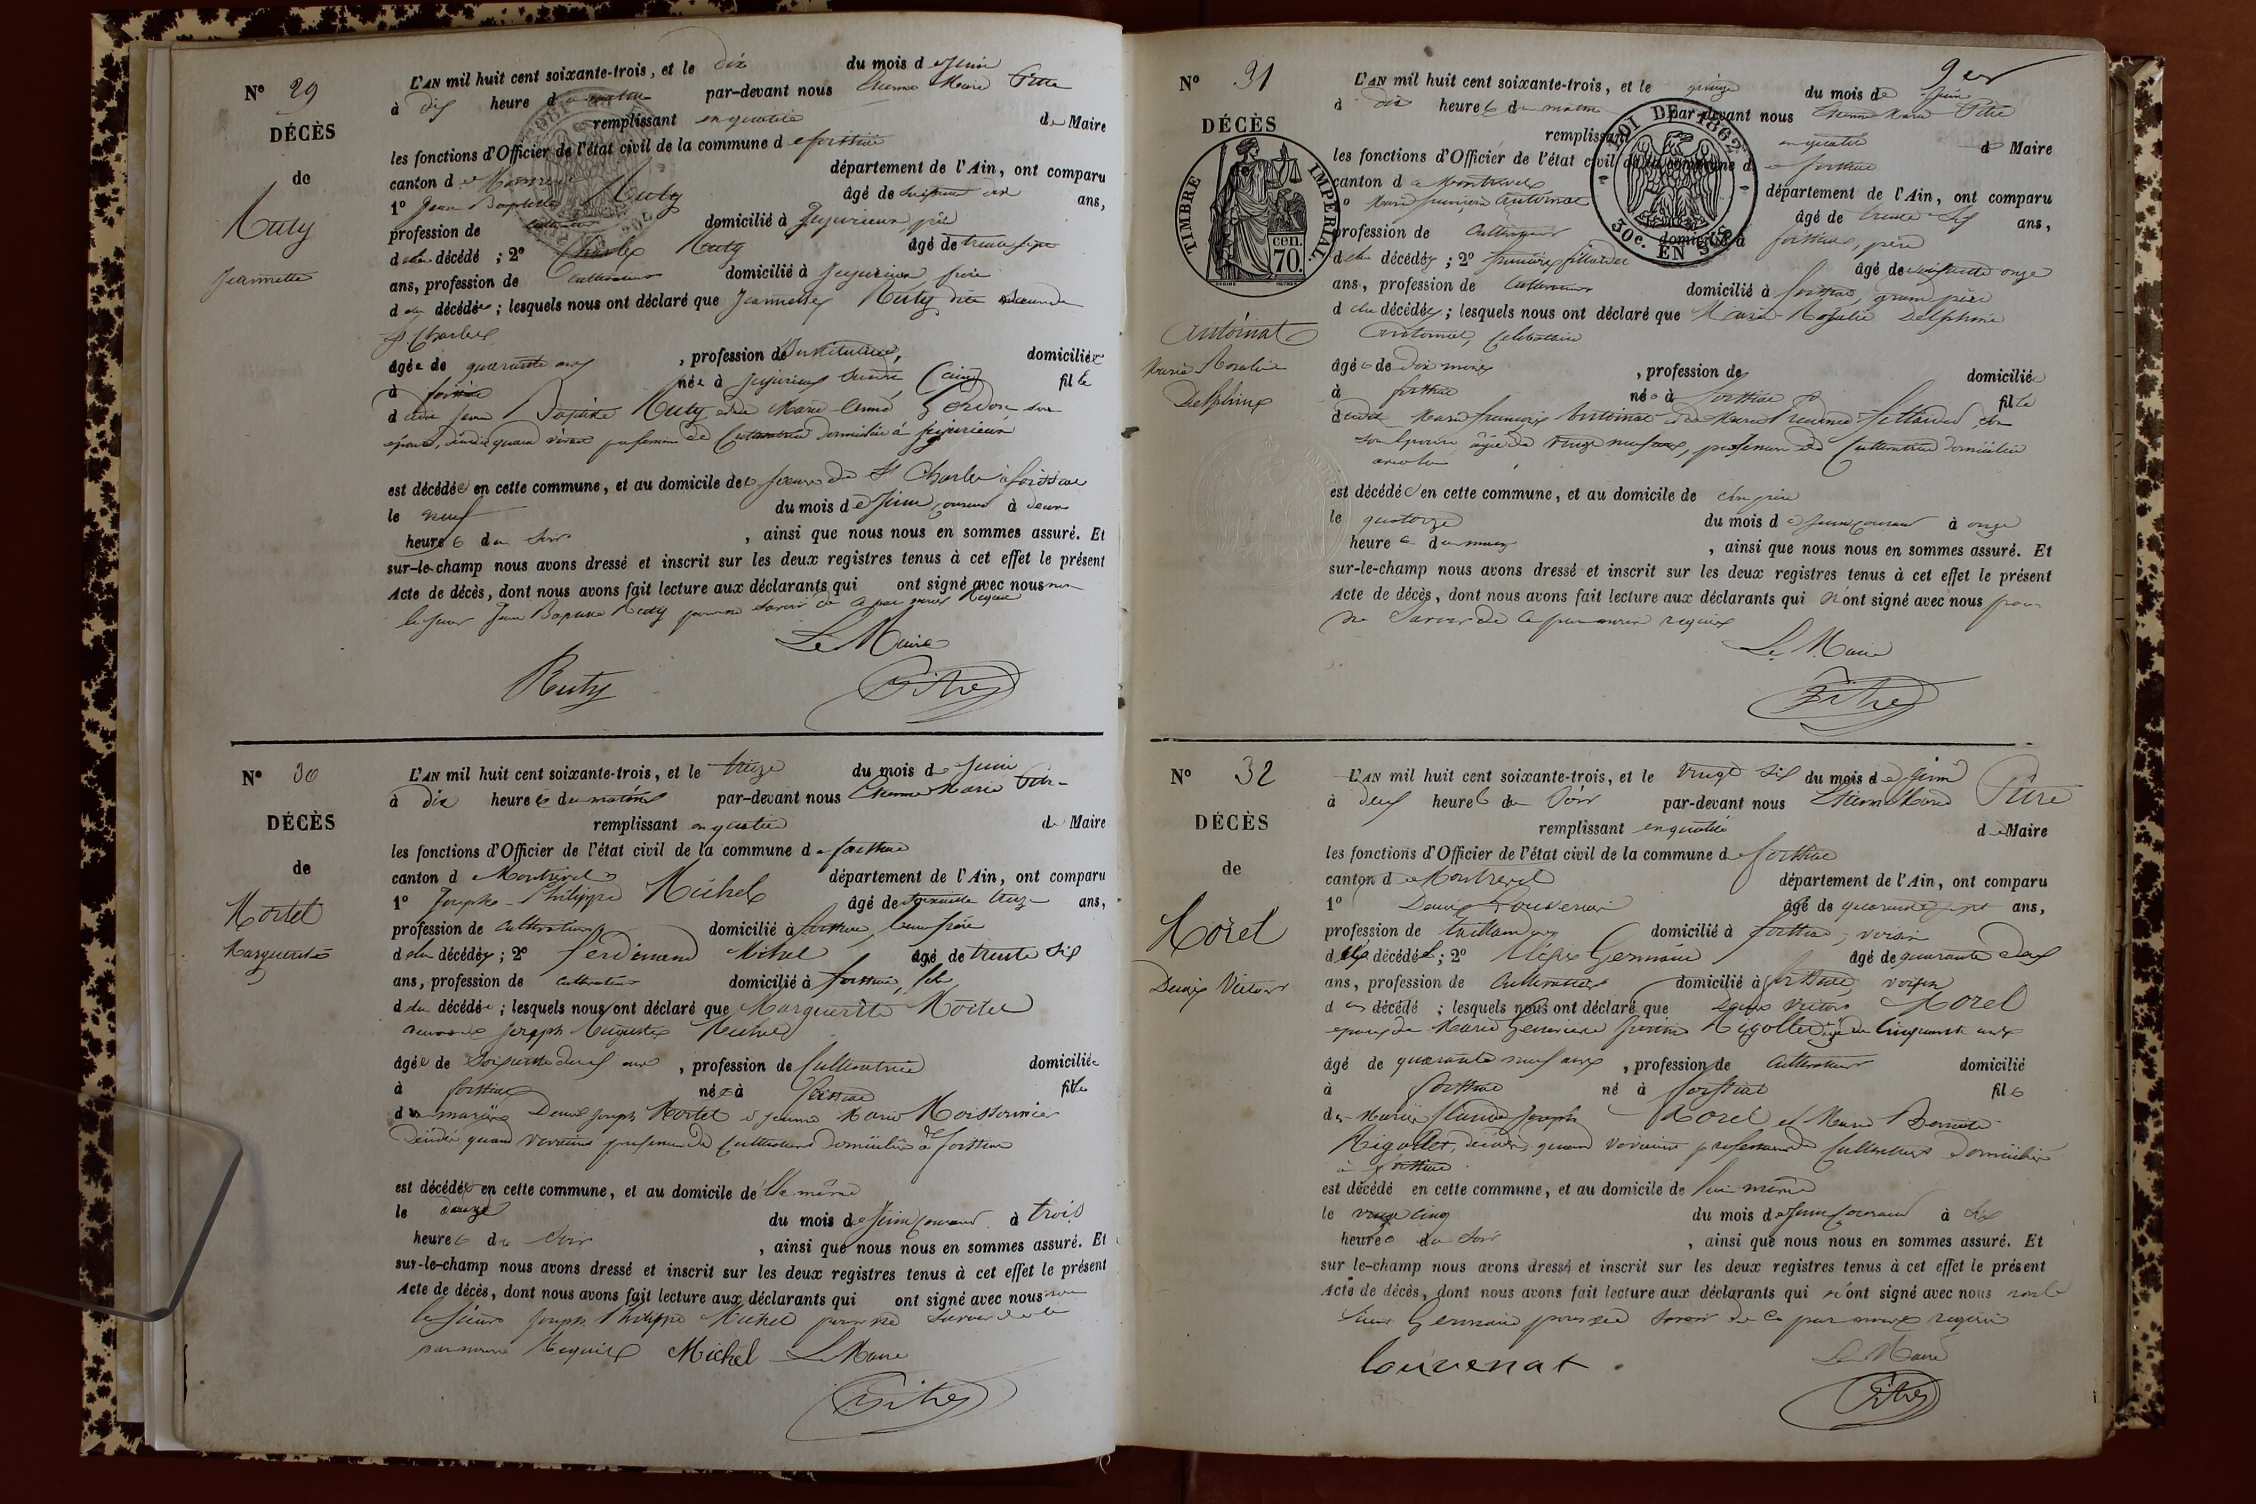 N° 29
DÉCÈS
de
Ruty
Jeannette
L'AN mil huit cent soixante-trois, et le dix du mois de Juin
à dix heure du matin par-devant nous Etienne Marie Pitre
remplissant en qualité de Maire
les fonctions d'Officier de l'état civil de la commune de foissiat
canton de Montrevel département de l'Ain, ont comparu
1° Jean Baptiste Ruty âgé de ans,
profession de cultivateur domicilié à Jujurieux, père
de la décédé ; 2° Charles Ruty âgé de trente
ans, profession de Cultivateur domicilié à Jujurieux frère
de la décédée ; lesquels nous ont déclaré que Jeannette Ruty dite
St Charles
âgée de quarante ans, profession de Institutrice, domiciliée
à foissiat née à Jujurieux (ain) fille
de Jean Baptiste Ruty et de Marie son
épouse, quand vivait profession de Cultivatrice domiciliée à Jujurieux
est décédée en cette commune, et au domicile des soeurs de St Charles à foissiat
le neuf du mois de Juin courant à deux
heures du soir, ainsi que nous nous en sommes assuré. Et
sur-le-champ nous avons dressé et inscrit sur les deux registres tenus à cet effet le présent
Acte de décès, dont nous avons fait lecture aux déclarants qui ont signé avec nous non
le sieur Jean Baptiste Ruty pour ne savoir de ce par nous Requis
Le Maire
Ruty Pitre
N° 30
DÉCÈS
de
Mortel
Marguerite
L'AN mil huit cent soixante-trois, et le treize du mois de Juin
à dix heures du matin par-devant nous Etienne Marie Pitre
remplissant en qualité de Maire
les fonctions d'Officier de l'état civil de la commune de foissiat
canton de Montrevel département de l'Ain, ont comparu
1° Joseph Philippe Michel âgé de soixante treize ans,
profession de Cultivateur domicilié à foissiat, beau frère
de la décédée ; 2° ferdinand Michel âgé de trente six
ans, profession de cultivateur domicilié à foissiat, fils
de la décédée ; lesquels nous ont déclaré que Marguerite Mortel
veuve de Joseph Auguste Michel
âgée de soixante deux ans, profession de Cultivatrice domiciliée
à foissiat née à foissiat fille
des mariés Denis Joseph Mortel et Jeanne Marie Moissonnier
décédés quand vivaient profession de Cultivateurs domiciliés à foissiat
est décédée en cette commune, et au domicile d'elle même
le douze du mois de Juin courant à trois
heures du soir, ainsi que nous nous en sommes assuré. Et
sur-le-champ nous avons dressé et inscrit sur les deux registres tenus à cet effet le présent
Acte de décès, dont nous avons fait lecture aux déclarants qui ont signé avec nous non
le sieur Joseph Philippe Michel pour ne savoir de ce
par nous Requis Michel Le Maire
Pitre
N° 31
DÉCÈS
TIMBRE IMPERIAL
cen. 70.
LOI DE 1862
30c. EN SUS
Antoinat
Marie Rosalie
Delphine
L'AN mil huit cent soixante-trois, et le quinze du mois de Juin
à dix heures du matin par-devant nous Etienne Marie Pitre
remplissant en qualité de Maire
les fonctions d'Officier de l'état civil de la commune de foissiat
canton de Montrevel département de l'Ain, ont comparu
1° Marie françois Antoinat âgé de trente six ans,
profession de Cultivateur domicilié à foissiat, père
de la décédée ; 2° françois fillardet âgé de soixante onze
ans, profession de Cultivateur domicilié à foissiat, grand père
de la décédée ; lesquels nous ont déclaré que Marie Rosalie Delphine
Antoinat, Célibataire
âgée de dix mois, profession de domiciliée
à foissiat née à foissiat fille
de Marie françois Antoinat et de Marie
son épouse âgée de vingt neuf ans, profession de Cultivatrice domiciliée
avec lui
est décédée en cette commune, et au domicile de son père
le quatorze du mois de Juin courant à onze
heures du matin, ainsi que nous nous en sommes assuré. Et
sur-le-champ nous avons dressé et inscrit sur les deux registres tenus à cet effet le présent
Acte de décès, dont nous avons fait lecture aux déclarants qui n'ont signé avec nous pour
ne Savoir de ce par nous requis
Le Maire
Pitre
N° 32
DÉCÈS
de
Morel
Denis Victor
L'AN mil huit cent soixante-trois, et le vingt six du mois de Juin
à deux heures du Soir par-devant nous Etienne Marie Pitre
remplissant en qualité de Maire
les fonctions d'Officier de l'état civil de la commune de foissiat
canton de Montrevel département de l'Ain, ont comparu
1° Denis Louvenat âgé de quarante sept ans,
profession de domicilié à foissiat, voisin
du décédé ; 2° Germain âgé de quarante deux
ans, profession de Cultivateur domicilié à foissiat voisin
du décédé ; lesquels nous ont déclaré que Denis Victor Morel
époux de Marie Genevieve Rigollet âgée de Cinquante ans
âgé de quarante neuf ans, profession de Cultivateur domicilié
à foissiat né à foissiat fils
des Mariés Claude Joseph Morel et Marie
Rigollet, décédés, quand vivaient profession de Cultivateurs domiciliés
à foissiat
est décédé en cette commune, et au domicile de lui même
le vingt cinq du mois de Juin Courant à six
heures du Soir, ainsi que nous nous en sommes assuré. Et
sur le-champ nous avons dressé et inscrit sur les deux registres tenus à cet effet le présent
Acte de décès, dont nous avons fait lecture aux déclarants qui ont signé avec nous non le
sieur Germain pour ne Savoir de ce par nous requis
Louvenat Le Maire
Pitre